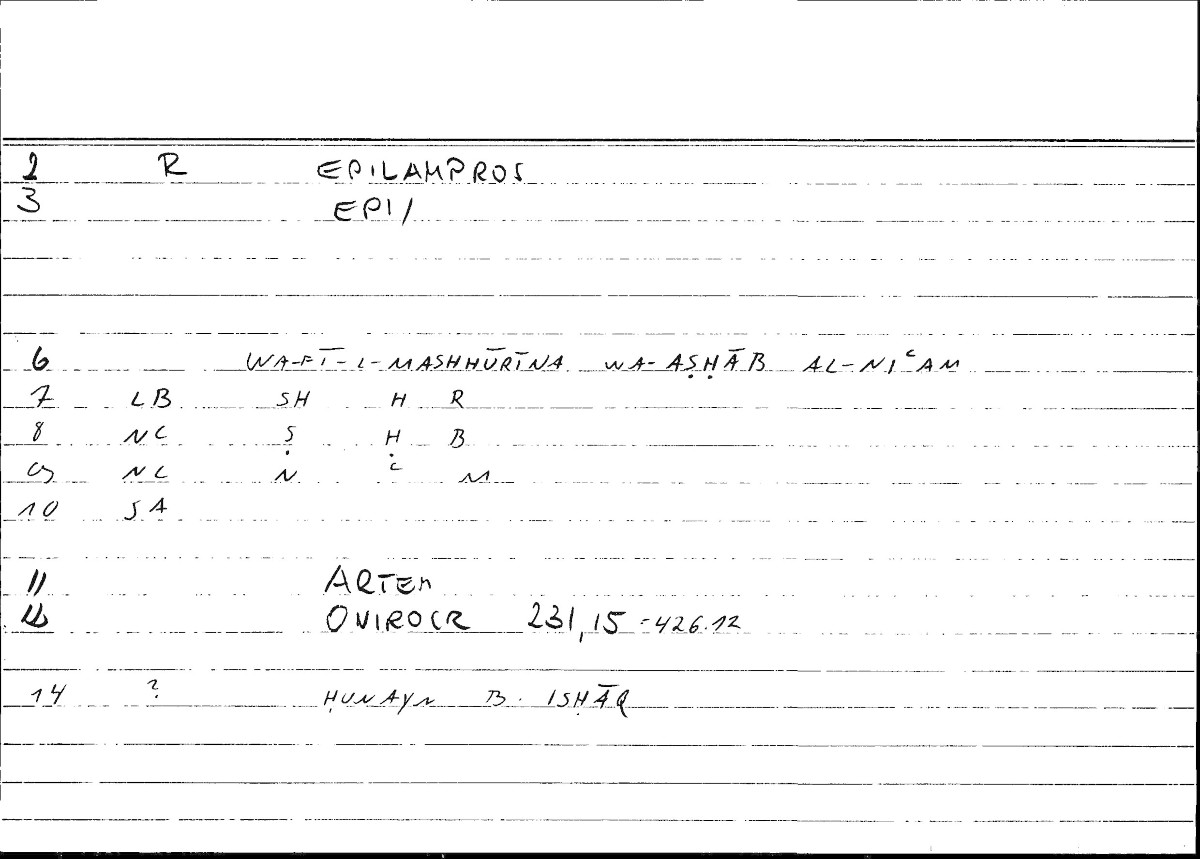 2 R EPILAMPROS
3 EPI/
6 WA-FĪ-L-MASHHŪRĪNA WA-AṢḤĀB AL-NIᶜAM
7 LB SH H R
8 NC Ṣ Ḥ B
9 NC N ᶜ M
10 SA
11 ARTEM
12 ONIROCR 231,15 = 426.12
14 ? ḤUNAYN B. ISḤĀQ